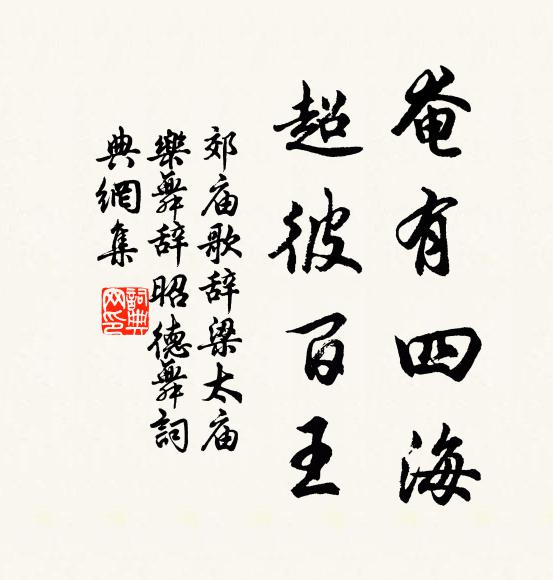 奄有四海
超彼百王
郊庙歌辞梁太庙
樂舞辞昭德舞詞
典網集
詞典
网印